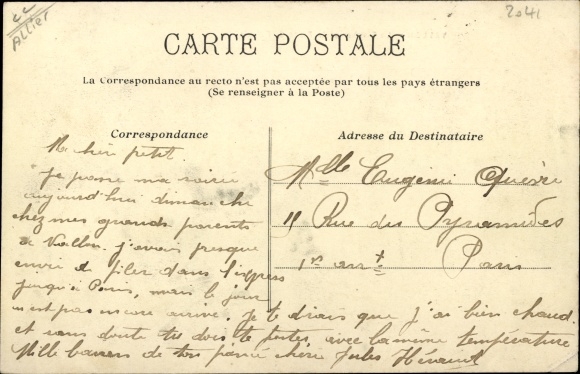 Allier
2041
CARTE POSTALE
La Correspondance au recto n'est pas acceptée par tous les pays étrangers
(Se renseigner à la Poste)
Correspondance
Ma chère petit
Je passe ma soirée
aujourd'hui dimanche
chez mes grands parents
à Vallon. j'avais presque
envie de filer dans l'express
jusqu'à Paris, mais le jour
n'est pas encore arrivé. Je te dirais que j'ai bien chaud
et sans doute tu dois te porter avec la même température
Mille baisers de ton fiancé chérie Jules
Adresse du Destinataire
Mlle Eugénie
11 Rue des Pyramides
1er arrt Paris